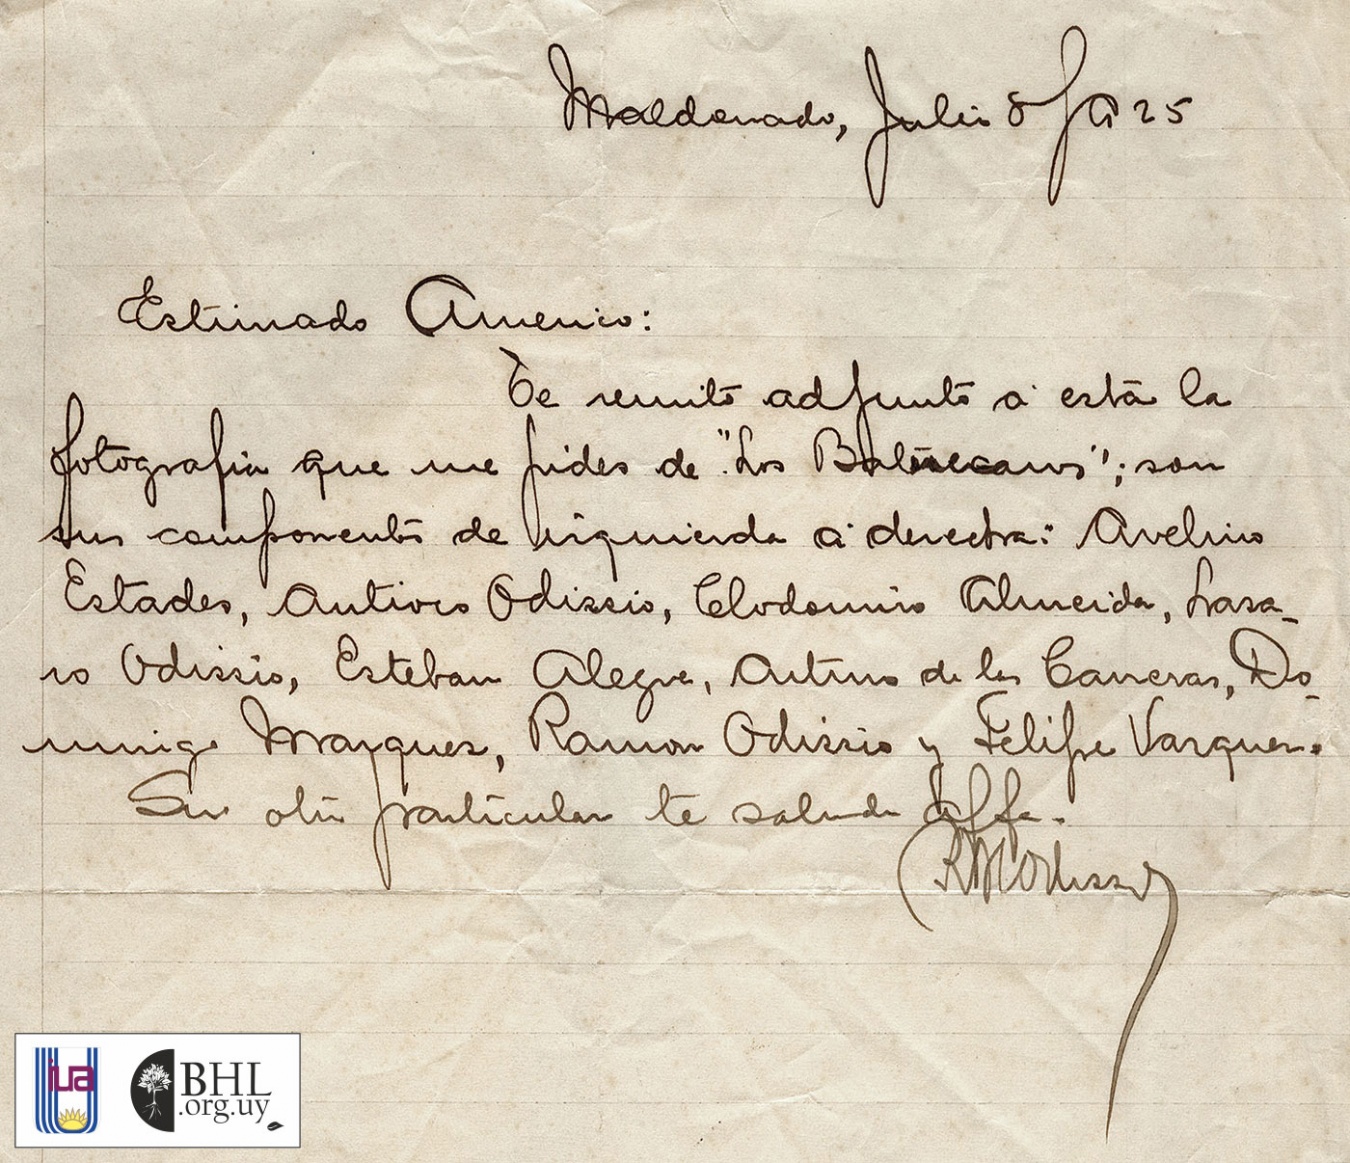 Maldonado, Julio 8/925
Estimado Americo:
Te remito adjunto a esta la
fotografia que me pides de "Los
son
sus componentes de izquierda a derecha: Avelino
Estades, Antioco Odissio, Clodomiro Almeida, Lasa-
ro Odissio, Esteban Alegre, Arturo de las Carreras, Do-
mingo Marquez, Ramon Odissio y Felipe Vasquez.
Sin otro particular te saluda affo.
RM Odissio
iua
BHL
.org.uy